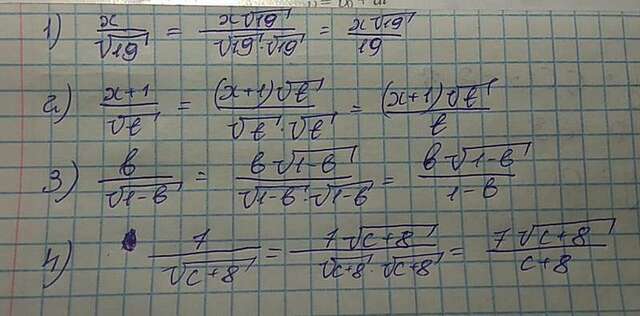 1) x/√19 = x√19/√19·√19 = x√19/19
2) x+1/√t = (x+1)√t/√t·√t = (x+1)√t/t
3) b/√1-b = b·√1-b/√1-b·√1-b = b·√1-b/1-b
4) 7/√c+8 = 7√c+8/√c+8·√c+8 = 7√c+8/c+8